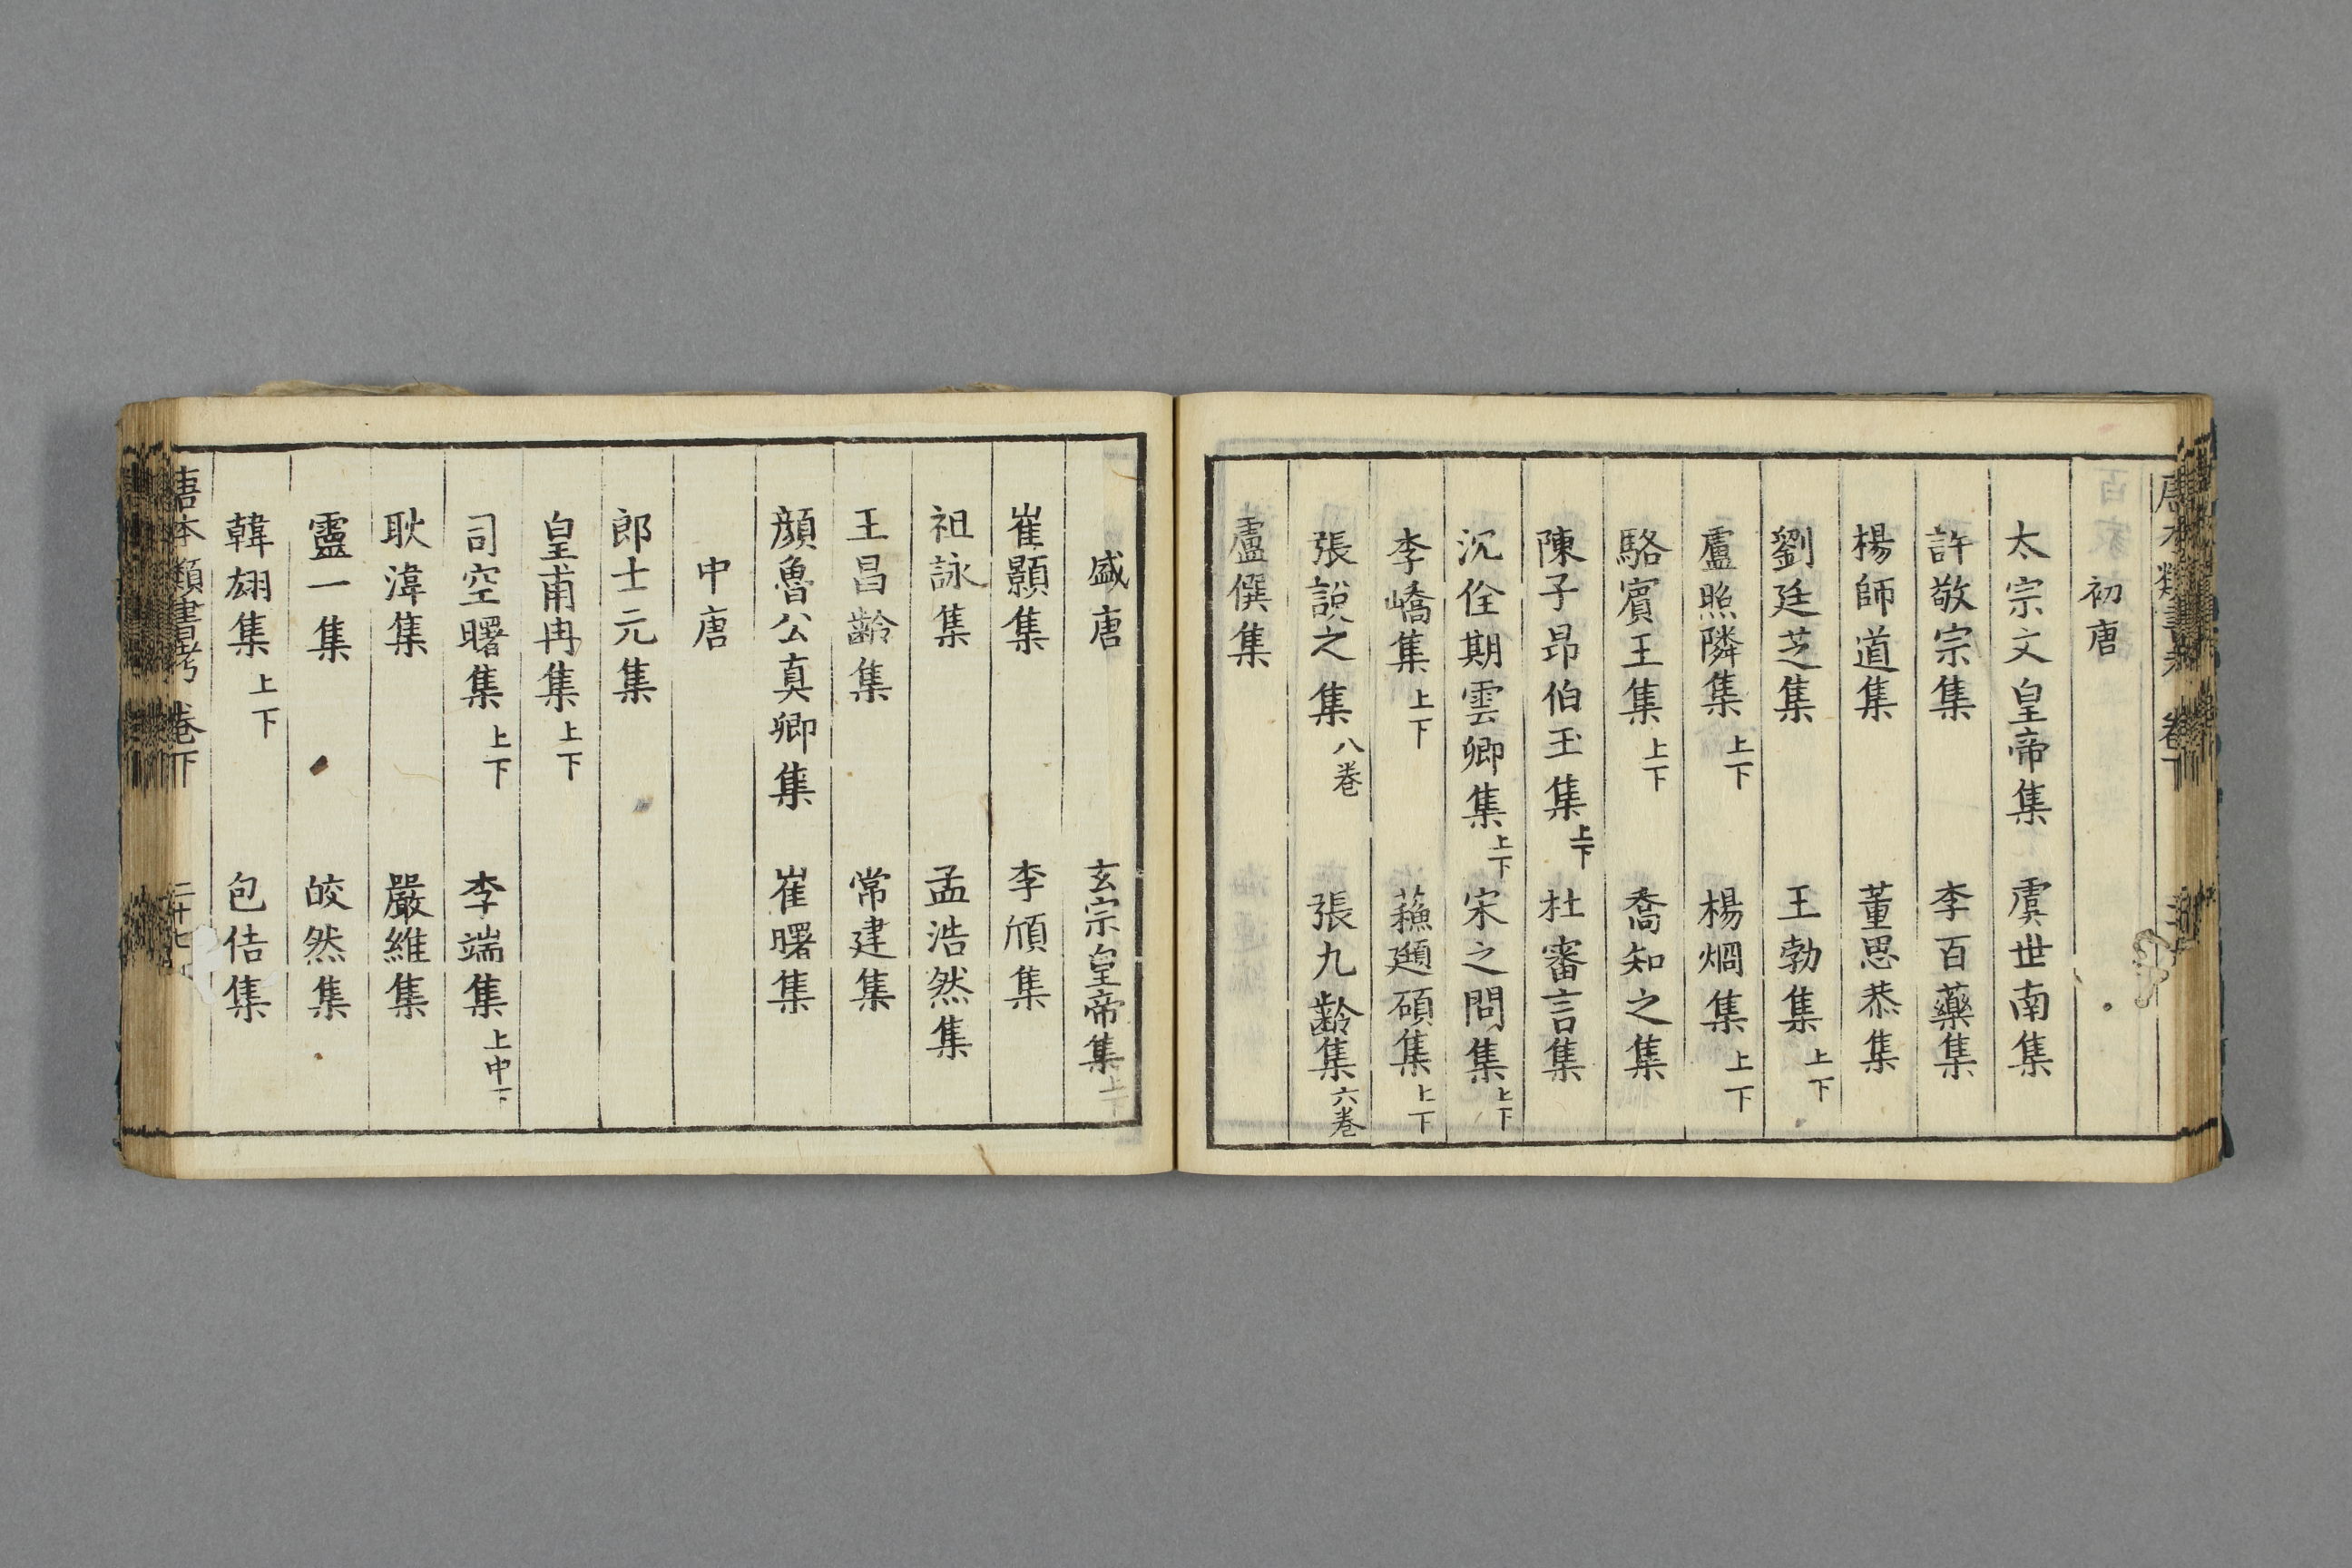 初唐
太宗文皇帝集 虞世南集
許敬宗集 李百藥集
楊師道集 董思恭集
劉廷芝集 王勃集上下
盧照隣集上下 楊烱集上下
駱賓王集上下 喬知之集
陳子昻伯玉集上下 杜審言集
沉佺期雲卿集上下 宋之問集上下
李嶠集上下 蘓廷碩集上下
張說之集八巻 張九齡集六巻
盧僎集
盛唐 玄宗皇帝集上下
崔顥集 李頎集
祖詠集 孟浩然集
王昌齡集 常建集
顔魯公真卿集 崔曙集
中唐
郎士元集
皇甫冉集上下
司空曙集上下 李端集上中下
耿湋集 嚴維集
靈一集 皎然集
韓翃集上下 包佶集
唐本類書考 巻下 二十七